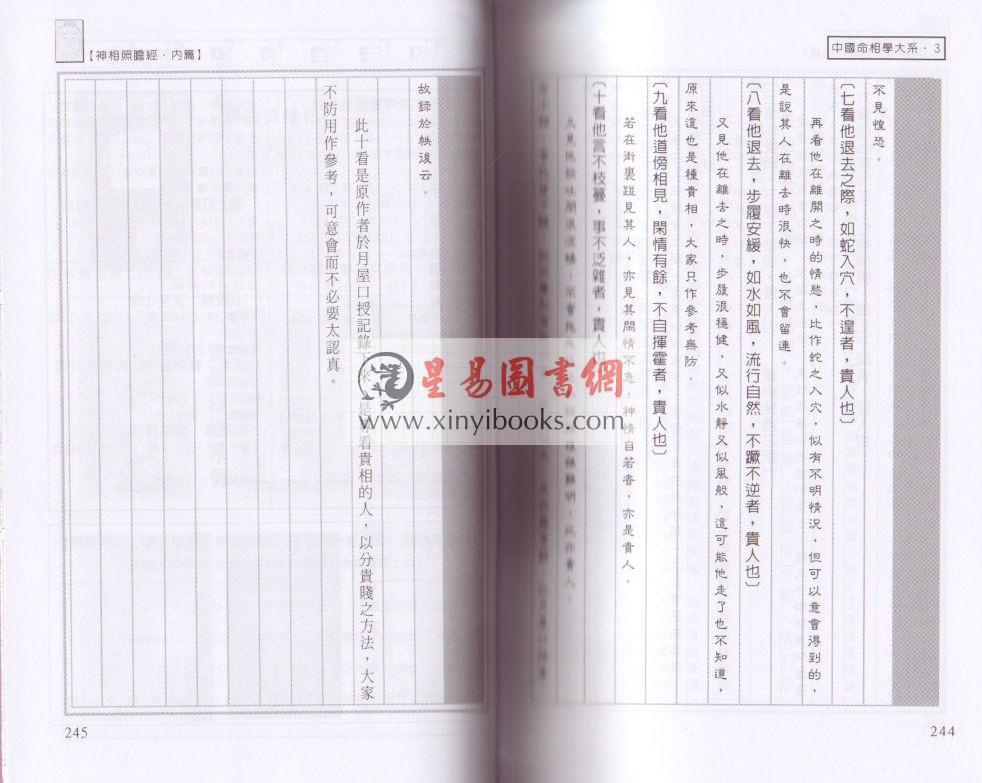 中國命相學大系・3
不見惶恐。
〔七看他退去之際，如蛇入穴，不遑者，貴人也〕
再看他在離開之時的情態，比作蛇之入穴，似有不明情況，但可以意會得到的，
是說其人在離去時很快，也不會留連。
〔八看他退去，步履安緩，如水如風，流行自然，不蹶不逆者，貴人也〕
又見他在離去之時，步履很穩健，又似水靜又似風般，這可能他走了也不知道，
原來這也是種貴相，大家只作參考無防。
〔九看他道傍相見，閑情有餘，不自揮霍者，貴人也〕
若在街裏踫見其人，亦見其閒情不急，神情自若者，亦是貴人。
〔十看他言不枝蔓，事不泛雜者，貴人也
244
【神相照膽經・內篇】
故錄於帙後云。
此十看是原作者於月屋口授記錄下來，是看貴相的人，以分貴賤之方法，大家
不防用作參考，可意會而不必要太認真。
245
星易圖書網
www.xinyibooks.com